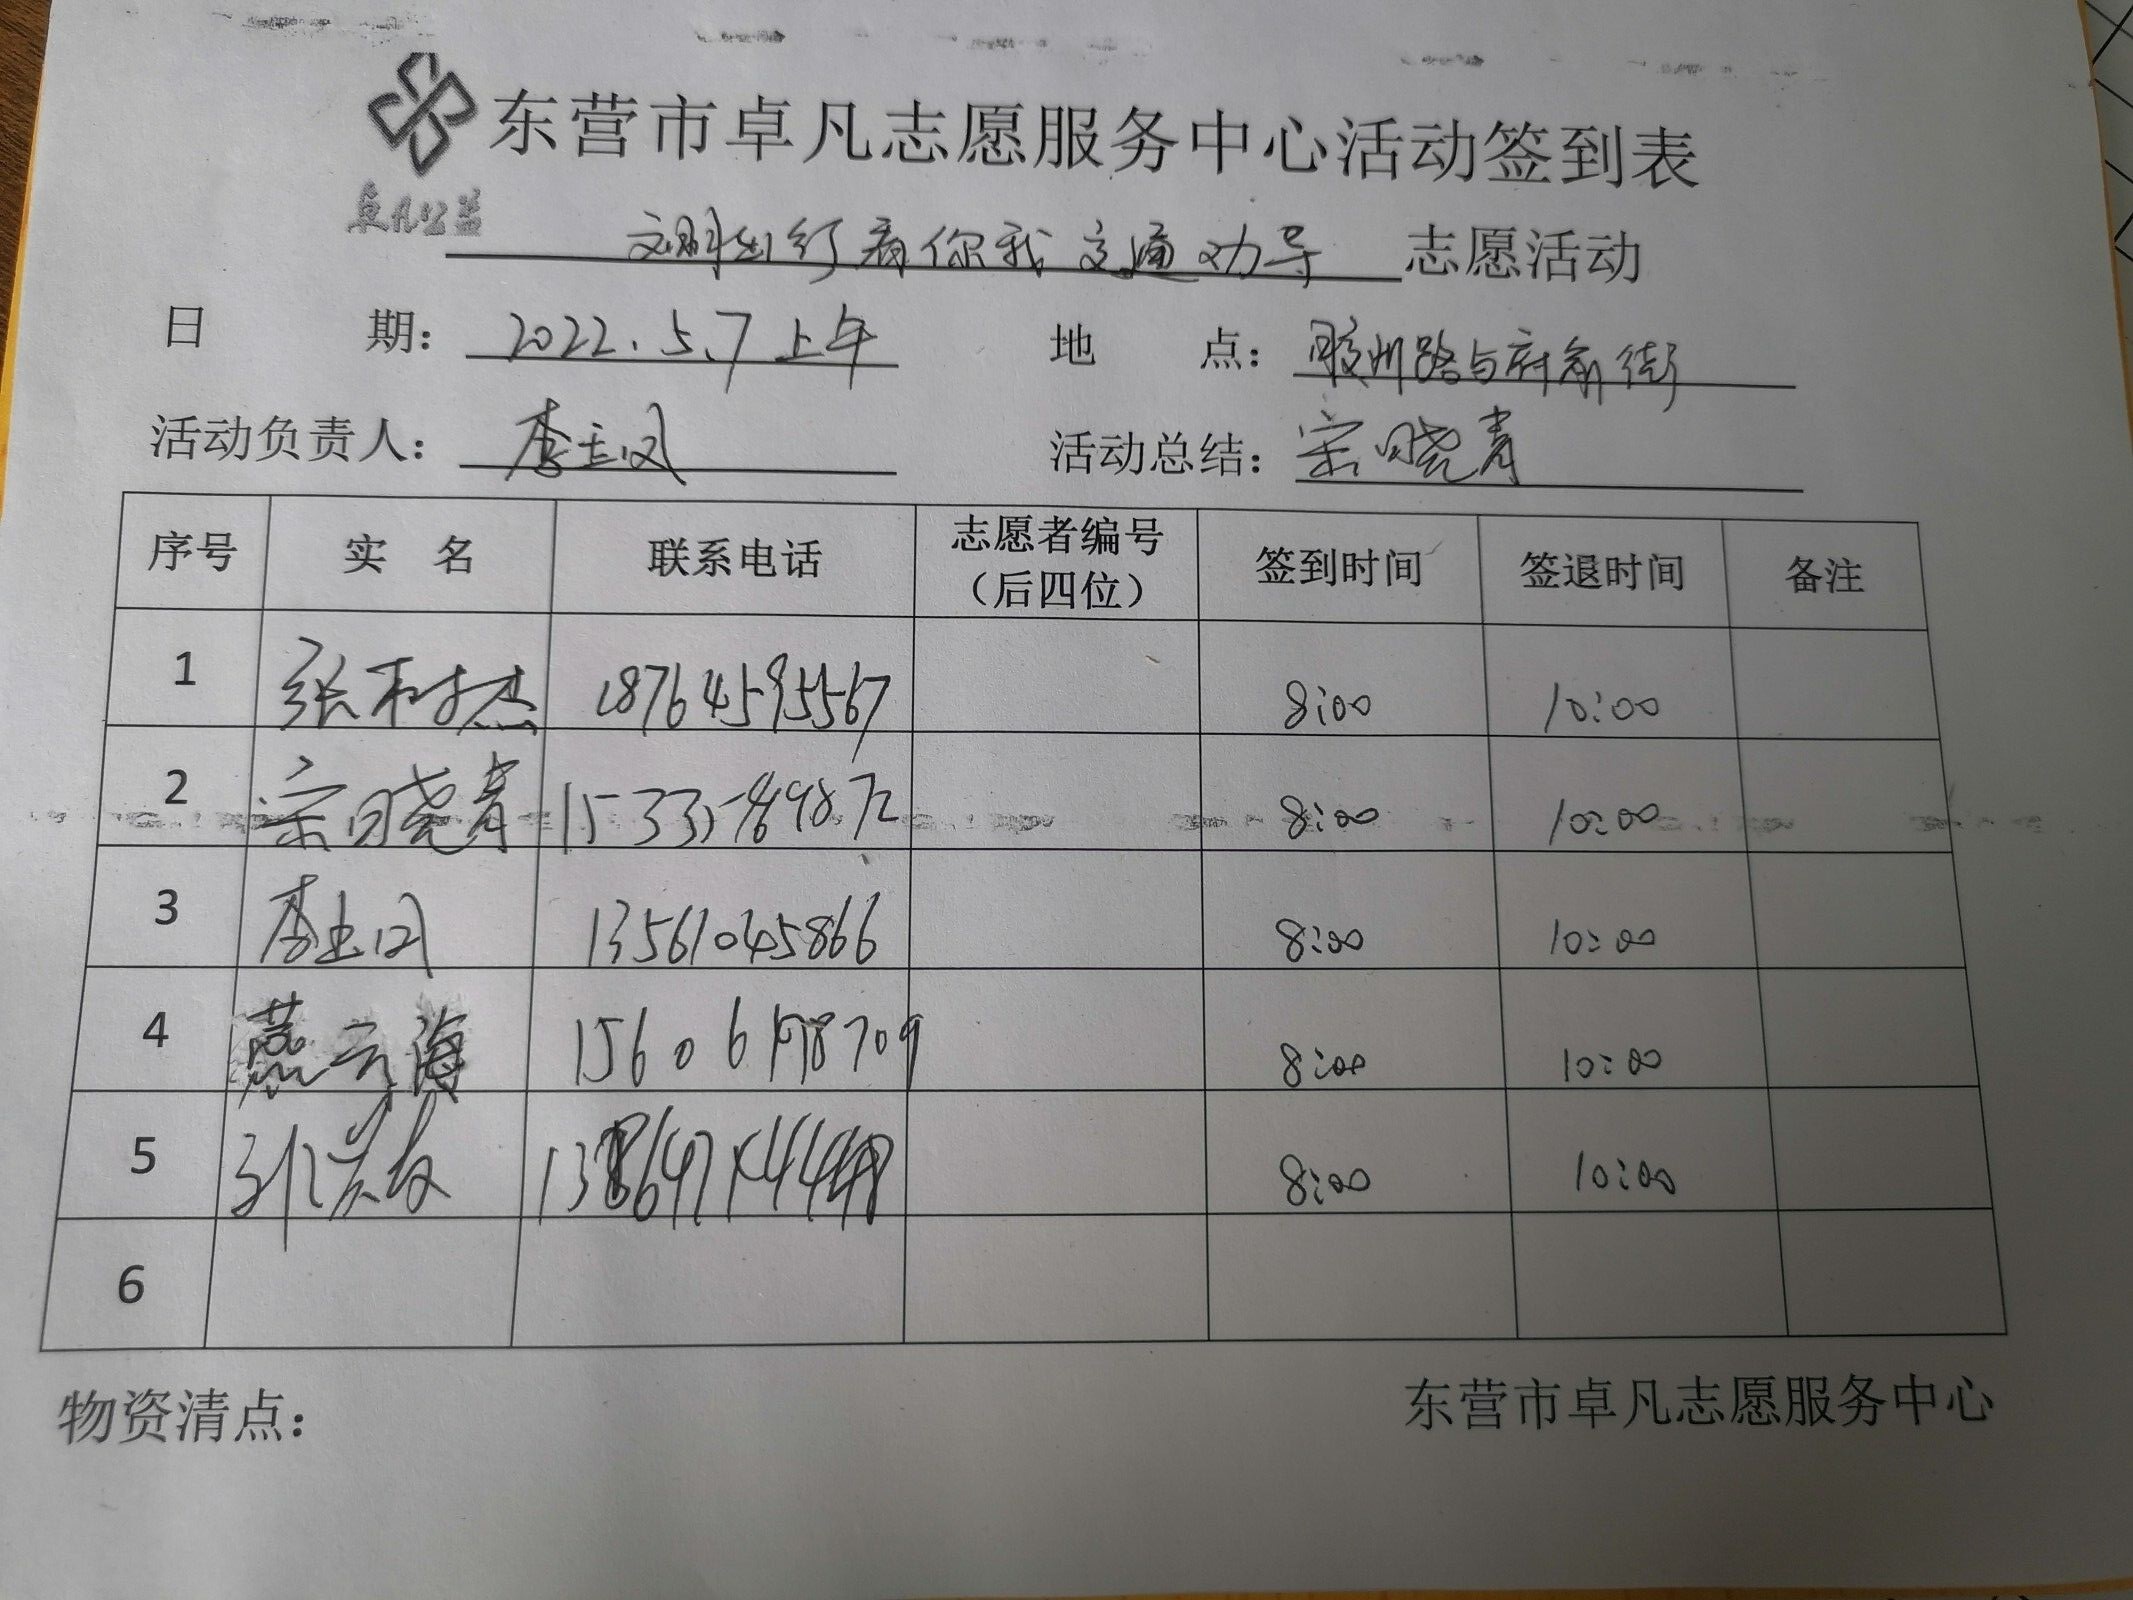 东营市卓凡志愿服务中心活动签到表
卓凡公益
文明出行有你我 交通劝导 志愿活动
日 期: 2022.5.7 上午 地 点: 胶州路与府前街
活动负责人: 李玉凤 活动总结: 宗晓青
序号 实 名 联系电话 志愿者编号(后四位) 签到时间 签退时间 备注
1 张树杰 18764595567 8:00 10:00
2 宗晓青 8:00 10:00
3 李玉凤 13561045866 8:00 10:00
4 燕云海 8:00 10:00
5 8:00 10:00
6
物资清点: 东营市卓凡志愿服务中心